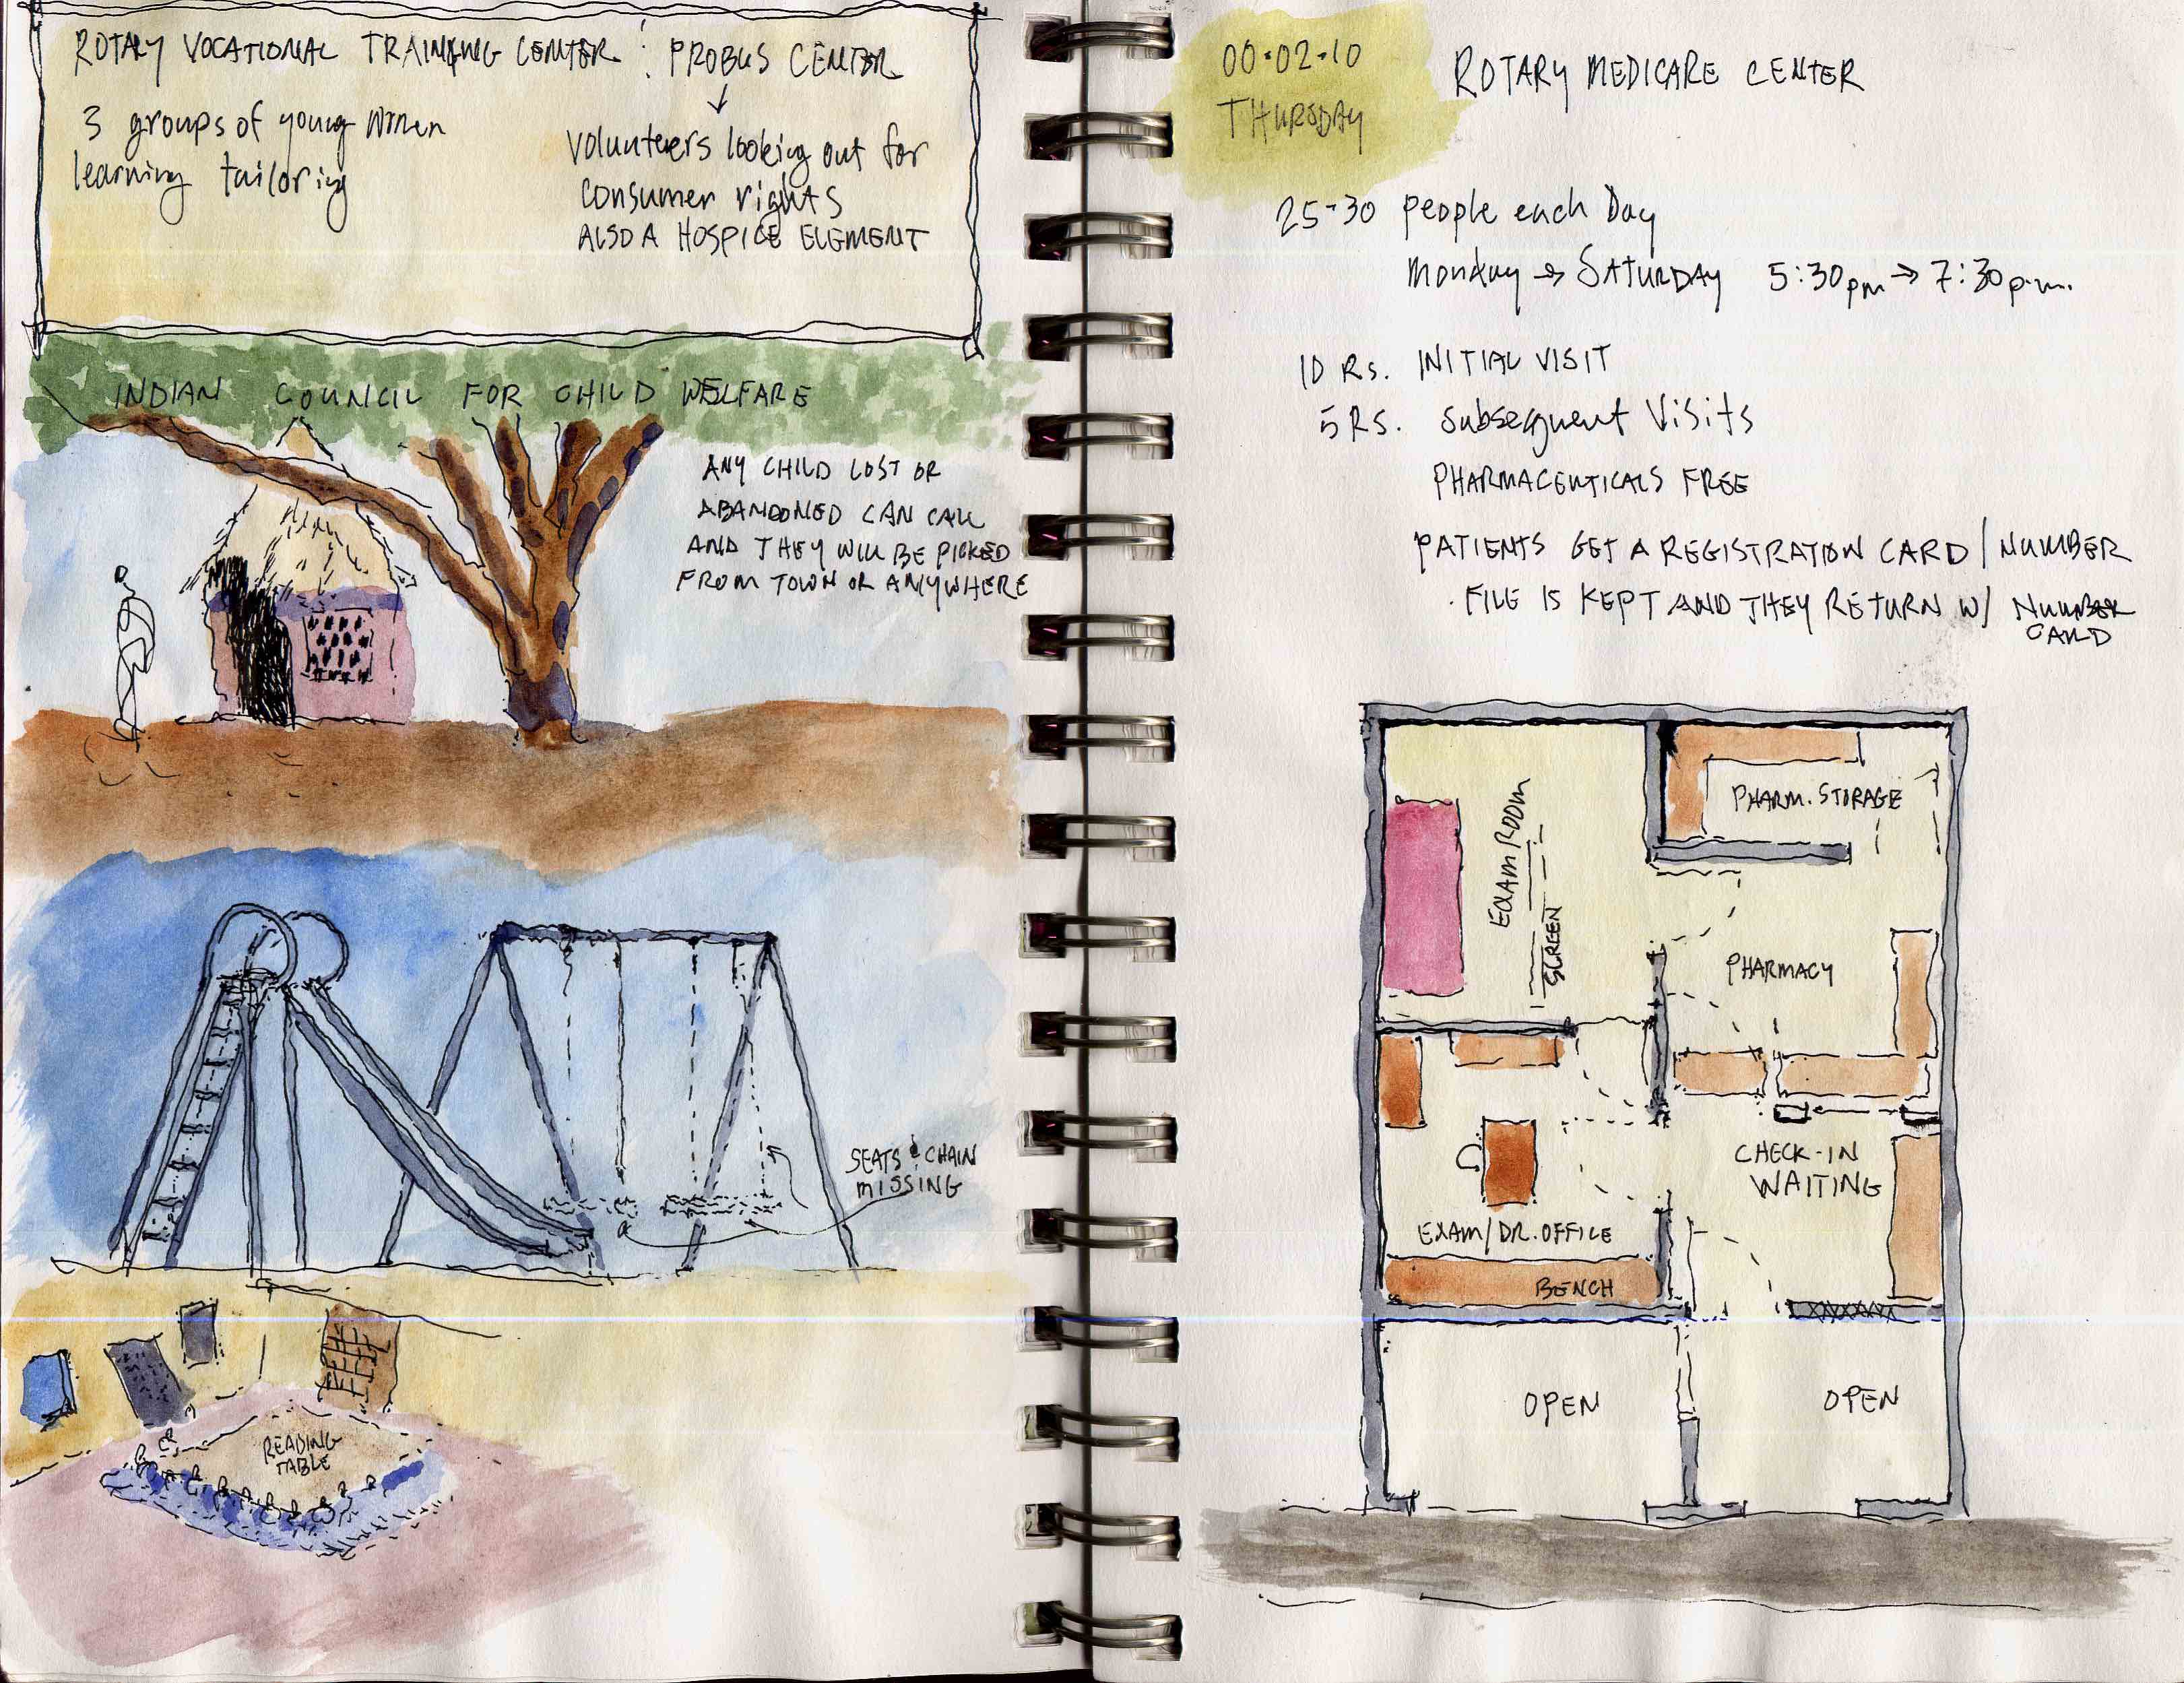 ROTARY VOCATIONAL TRAINING CENTER : PROBUS CENTER
3 groups of young women
learning tailoring
Volunteers looking out for
consumer rights
ALSO A HOSPICE ELEMENT
INDIAN COUNCIL FOR CHILD WELFARE
ANY CHILD LOST OR
ABANDONED CAN CALL
AND THEY WILL BE PICKED
FROM TOWN OR ANYWHERE
SEATS & CHAIN
MISSING
READING
TABLE
00.02.10
THURSDAY
ROTARY MEDICARE CENTER
25-30 people each Day
Monday → SATURDAY 5:30pm → 7:30p.m.
10 Rs. INITIAL VISIT
5 RS. Subsequent Visits
PHARMACEUTICALS FREE
PATIENTS GET A REGISTRATION CARD/NUMBER
. FILE IS KEPT AND THEY RETURN W/ NUMBER
CARD
EXAM ROOM
SCREEN
PHARM. STORAGE
PHARMACY
CHECK-IN
WAITING
EXAM/DR. OFFICE
BENCH
OPEN
OPEN